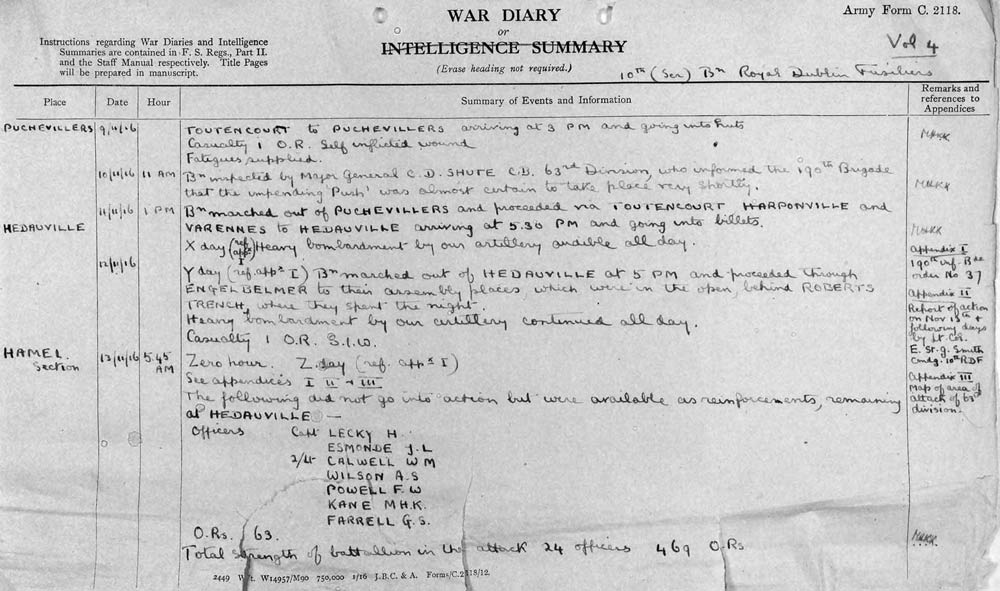 WAR DIARY
or
INTELLIGENCE SUMMARY
(Erase heading not required.)
Army Form C. 2118.
Instructions regarding War Diaries and Intelligence
Summaries are contained in F. S. Regs., Part II.
and the Staff Manual respectively. Title Pages
will be prepared in manuscript.
Vol 4
10th (Ser) Bn Royal Dublin Fusiliers
Place Date Hour Summary of Events and Information Remarks and references to Appendices
PUCHEVILLERS 9/11/16 TOUTENCOURT to PUCHEVILLERS arriving at 3 PM and going into huts
Casualty 1 O.R. Self inflicted wound
Fatigues supplied.
10/11/16 11 AM Bn inspected by Major General C.D. SHUTE C.B. 63rd Division, who informed the 190th Brigade
that the impending 'Push' was almost certain to take place very shortly.
11/11/16 1 PM Bn marched out of PUCHEVILLERS and proceeded via TOUTENCOURT HARPONVILLE and
HEDAUVILLE VARENNES to HEDAUVILLE arriving at 5.30 PM and going into billets.
X day (ref. appx I) Heavy bombardment by our artillery audible all day.
12/11/16 Y day (ref. appx I) Bn marched out of HEDAUVILLE at 5 PM and proceeded through
ENGELBELMER to their assembly places, which were in the open, behind ROBERTS
TRENCH, where they spent the night.
Heavy bombardment by our artillery continued all day.
Casualty 1 O.R. S.I.W.
HAMEL Section 13/11/16 5.45 AM Zero hour. Z day (ref. appx I)
See appendices I II + III
The following did not go into action but were available as reinforcements, remaining
at HEDAUVILLE —
Officers Capt LECKY H
ESMONDE J.L
2/Lt CALWELL W M
WILSON A.S
POWELL F.W
KANE M.H.K.
FARRELL G.S.
O.Rs. 63.
Total strength of battallion in the attack 24 officers 469 O.Rs
Appendix I
190th Inf. Bde
order No 37
Appendix II
Report of action
on Nov 13th +
following days
by Lt. Col.
E. St. G. Smith
Comdg. 10th RDF
Appendix III
Map of area of
attack of 63rd
division.
2449 Wt. W14957/M90 750,000 1/16 J.B.C. & A. Forms/C.2118/12.